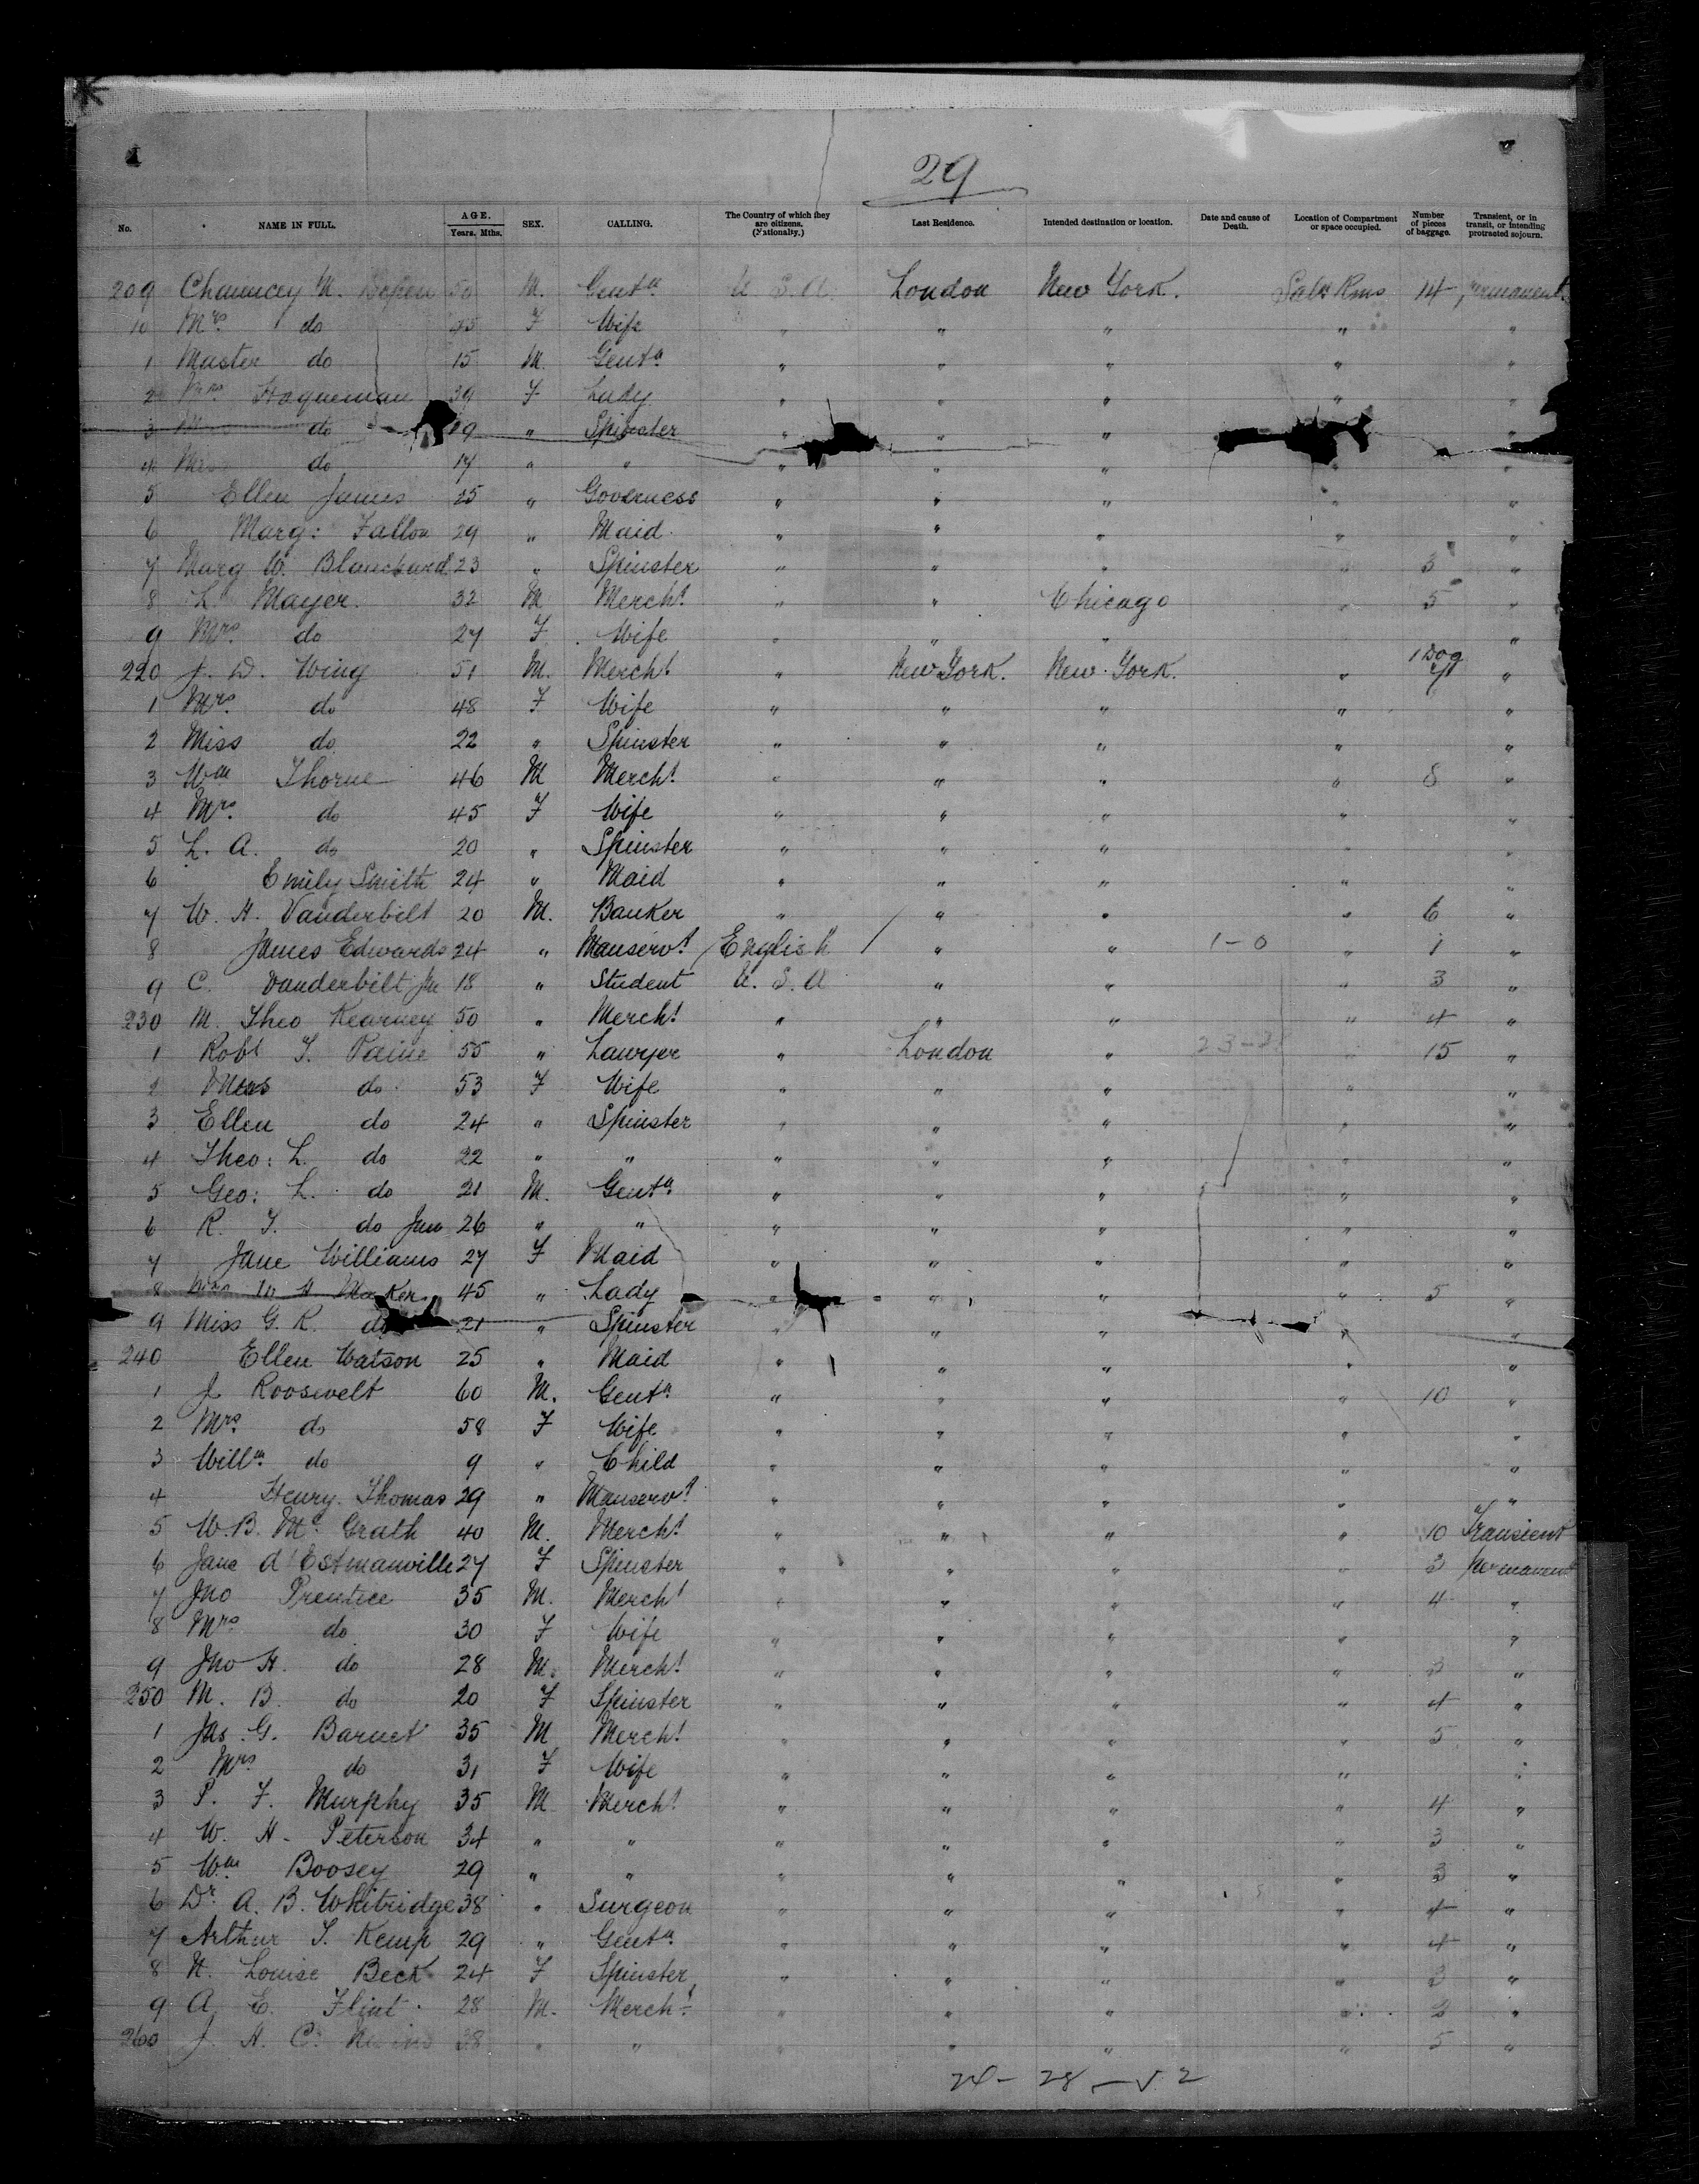 29
No. NAME IN FULL. AGE. Years. Mths. SEX. CALLING. The Country of which they are citizens. (Nationality.) Last Residence. Intended destination or location. Date and cause of Death. Location of Compartment or space occupied. Number of pieces of baggage. Transient, or in transit, or intending protracted sojourn.
209 Chauncey M. 50 M. Gentn U.S.A. London New York. Saln Rms 14 permanent
10 Mrs do F Wife " " " " "
1 Master do 15 M. Gentn " " " " "
2 Mrs Hagueman 39 F Lady " " " " "
3 do 19 " Spinster " " " "
4 do 17 " " " " " " "
5 Ellen James 25 " Governess " " " " "
6 Marg: Fallon 29 " Maid " " " " "
7 Marg W. Blanchard 23 " Spinster " " " " 3 "
8 L. Mayer. 32 M Mercht " " Chicago " 5 "
9 Mrs do 27 F Wife " " " "
1 Dog
220 J. D. Wing 51 M. Mercht " New York. New York. " "
1 Mrs do 48 F Wife " " " " "
2 Miss do 22 " Spinster " " " " "
3 Wm Thorne 46 M Mercht " " " " 8 "
4 Mrs. do 45 F Wife " " " " "
5 L. A. do 20 " Spinster " " " " "
6 Emily Smith 24 " Maid " " " " "
7 W. H. Vanderbilt 20 M. Banker " " " " 6 "
8 James Edwards 24 " Manservt English " " 1-0 " 1 "
9 C. Vanderbilt Jn 18 " Student U.S.A " " " 3 "
230 M. Theo Kearney 50 " Mercht " " " " 4 "
1 Robt T. Paine 55 " Lawyer " London " " 15 "
2 Mrs do 53 F Wife " " " " "
3 Ellen do 24 " Spinster " " " " "
4 Theo: L. do 22 " " " " " " "
5 Geo: L. do 21 M. Gentn " " " " "
6 R. T. do Jun 26 " " " " " " "
7 Jane Williams 27 F Maid " " " " "
8 Mrs W H 45 " Lady " " " " 5 "
9 Miss G. R. do 21 " Spinster " " " " "
240 Ellen Watson 25 " Maid " " " " "
1 J Roosevelt 60 M. Gentn " " " " 10 "
2 Mrs do 58 F Wife " " " " "
3 Willm do 9 " Child " " " " "
4 Henry. Thomas 29 " Manservt " " " " "
5 W. B. Mc Grath 40 M. Mercht " " " " 10 Transient
6 Jane d'Estmanville 27 F Spinster " " " " 3 permanent
7 Jno Prentice 35 M. Mercht " " " " 4 "
8 Mrs do 30 F Wife " " " " "
9 Jno H. do 28 M. Mercht " " " " 3 "
250 M. B. do 20 F Spinster " " " " 4 "
1 Jas. G. Barnet 35 M Mercht " " " " 5 "
2 Mrs do 31 F Wife " " " " "
3 P. F. Murphy 35 M Mercht " " " " 4 "
4 W. H. Peterson 34 " " " " " " 3 "
5 Wm Boosey 29 " " " " " " 3 "
6 Dr. A. B. Whitridge 38 " Surgeon " " " " 4 "
7 Arthur T. Kemp 29 " Gentn " " " " 4 "
8 N. Louise Beck 24 F Spinster " " " " 3 "
9 A. E. Flint 28 M. Mercht " " " " 2 "
260 J. H. C. 38 " " " " " " 5 "